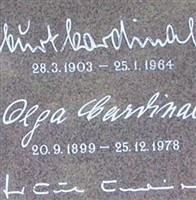 Kurt Cardinal
28.3.1903 – 25.1.1964
Olga Cardinal
20.9.1899 – 25.12.1978